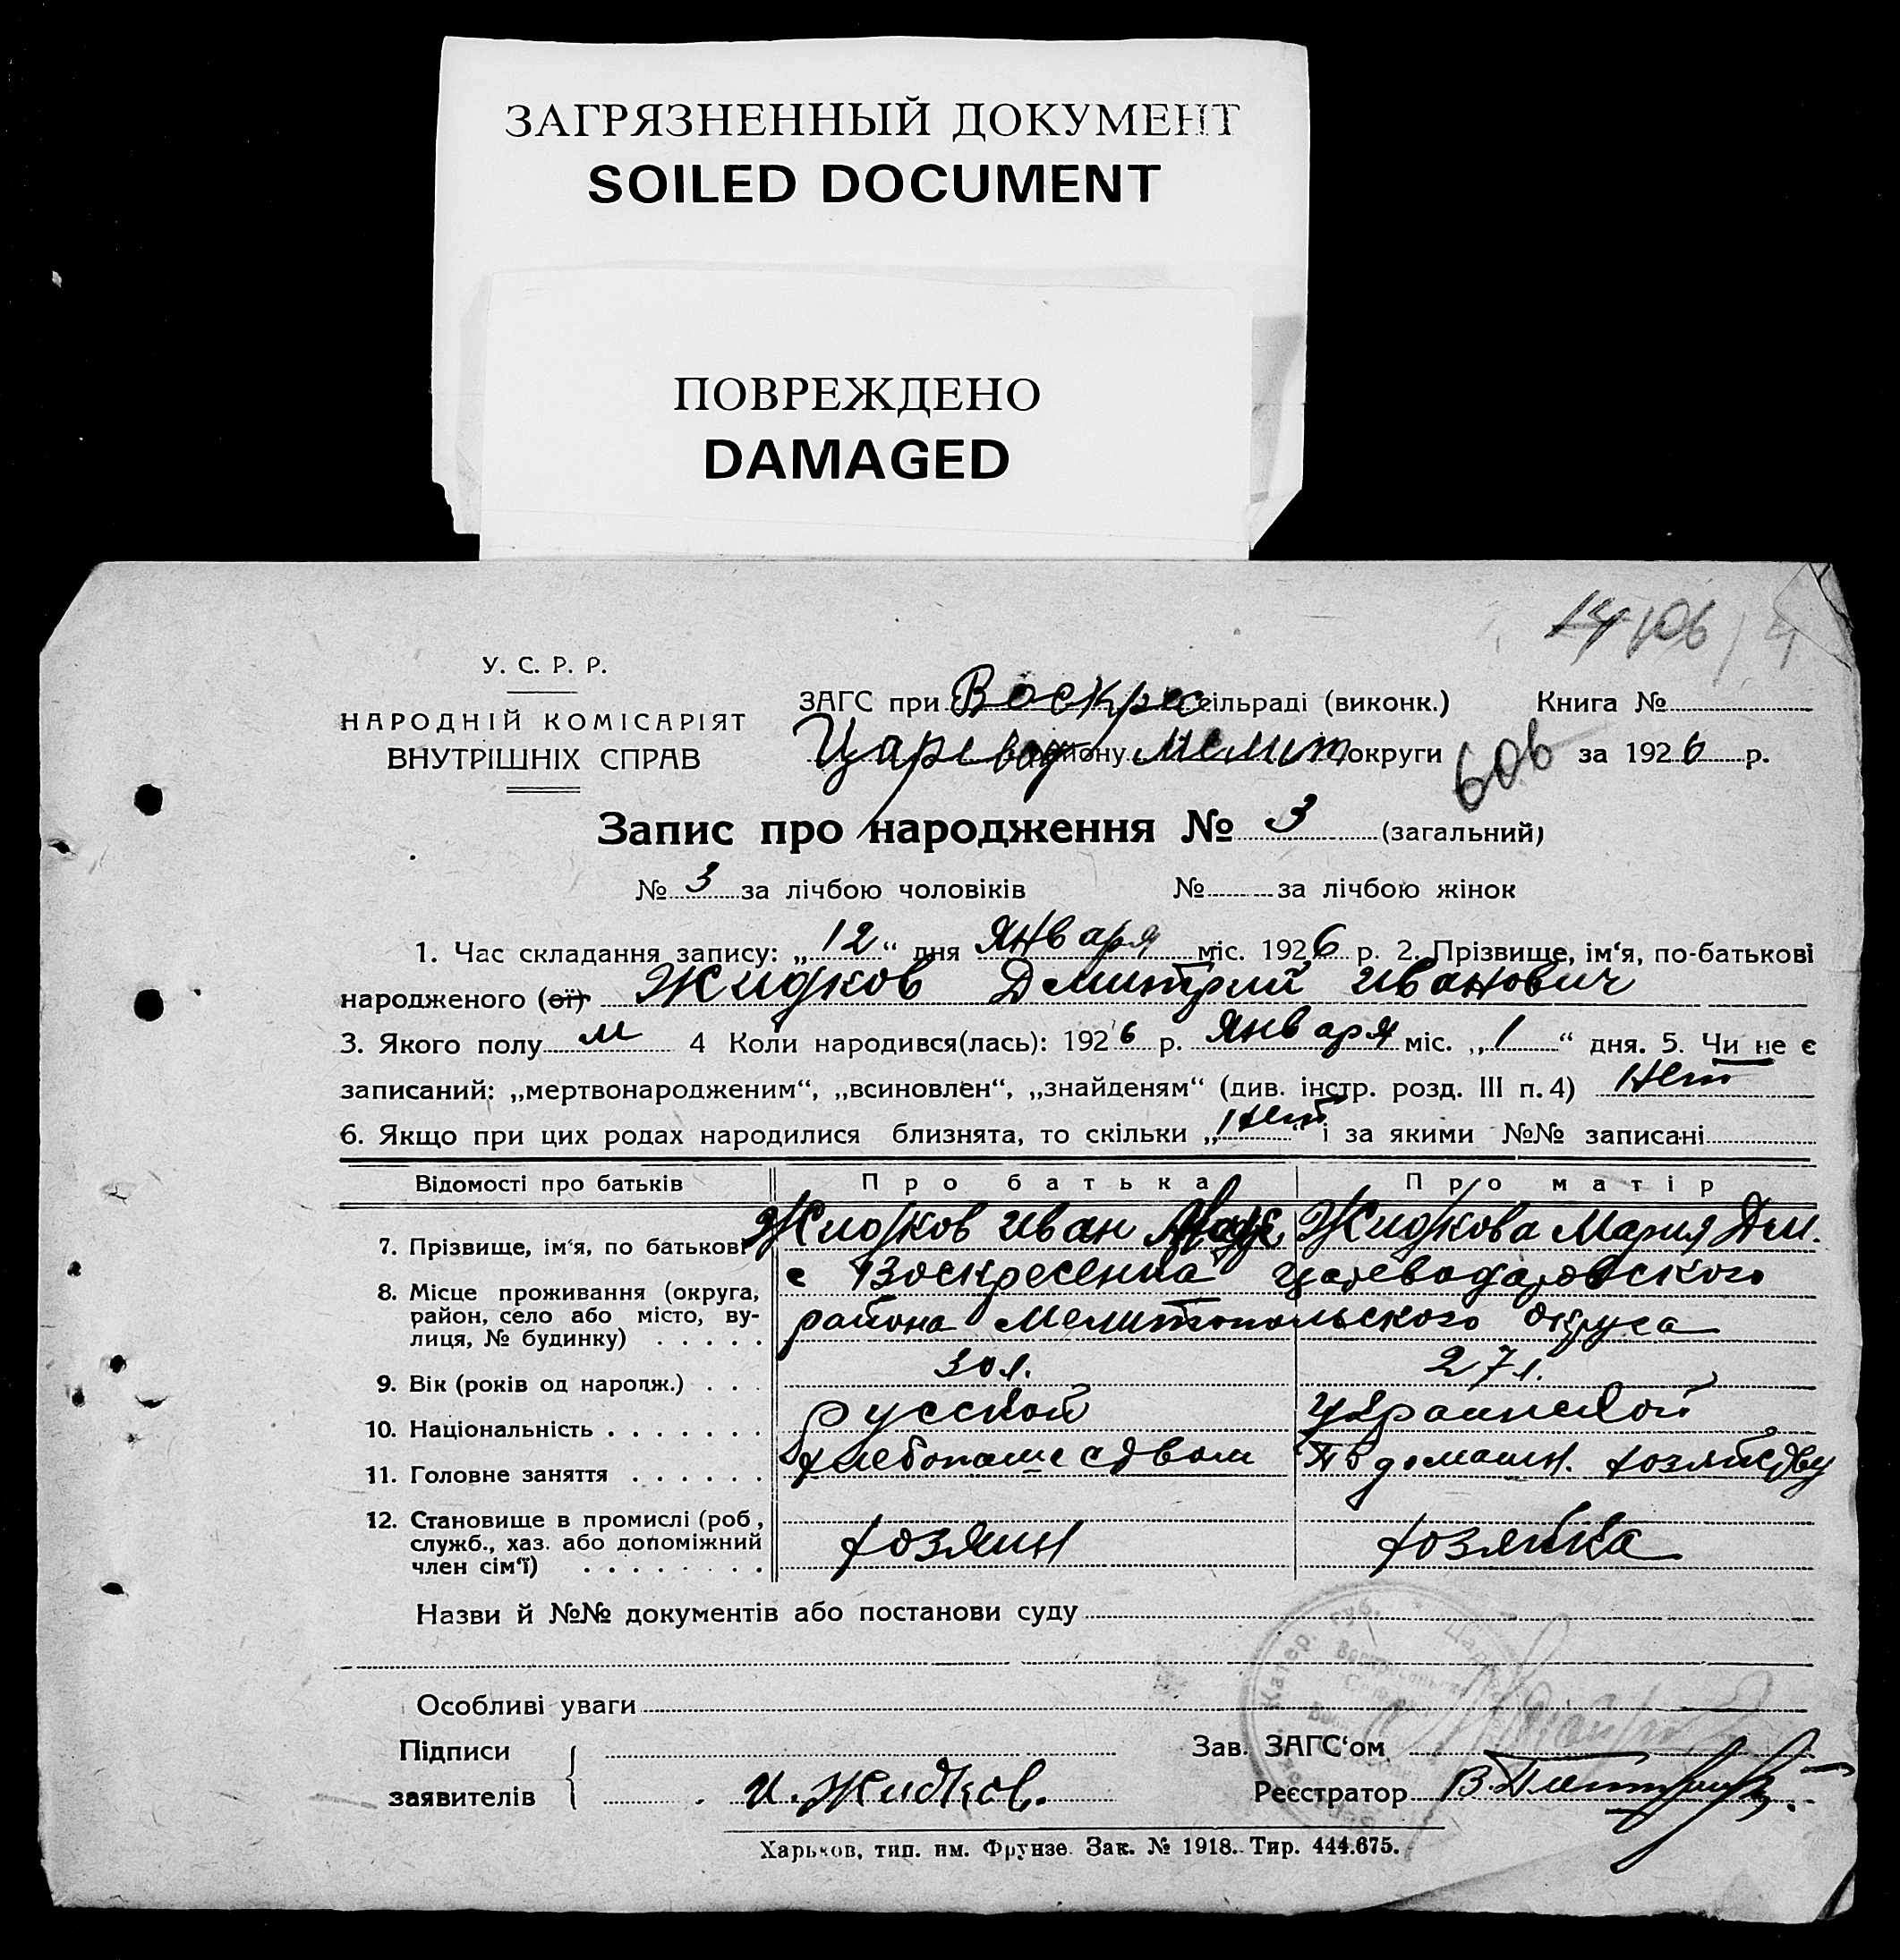 ЗАГРЯЗНЕННЫЙ ДОКУМЕНТ
SOILED DOCUMENT
ПОВРЕЖДЕНО
DAMAGED
14 106
У. С. Р. Р.
НАРОДНІЙ КОМІСАРІЯТ
ВНУТРІШНІХ СПРАВ
ЗАГС при Воскрес сільраді (виконк.) Книга №
Царевод району Мелит округи 606 за 1926 р.
Запис про народження № 3 (загальний)
№ 3 за лічбою чоловіків № за лічбою жінок
1. Час складання запису: „12“ дня Января міс. 1926 р. 2. Прізвище, ім‘я, по-батькові
народженого (ої) Жидков Дмитрий Иванович
3. Якого полу м 4 Коли народився(лась): 1926 р. Января міс. „1“ дня. 5. Чи не є
записаний: „мертвонародженим“, „всиновлен“, „знайденям“ (див. інстр. розд. III п. 4) Нет
6. Якщо при цих родах народилися близнята, то скільки „Нет“ і за якими №№ записані
Відомості про батьків Про батька Про матір
7. Прізвище, ім‘я, по батькові Жидков Иван Жидкова Мария Дм.
8. Місце проживання (округа, район, село або місто, вулиця, № будинку) с Воскресенка Цареводаровского
района Мелитопольского округа
9. Вік (років од народж.) 30 л. 27 л.
10. Національність Русской Украинской
11. Головне заняття Хлебопашеством По домашн. хозяйству
12. Становище в промислі (роб, служб., хаз. або допоміжний член сім‘ї) хозяин хозяйка
Назви й №№ документів або постанови суду
Особливі уваги
Підписи
заявителів И. Жидков.
Зав. ЗАГС‘ом
Реєстратор В.
Харьков, тип. им. Фрунзе. Зак. № 1918. Тир. 444.675.